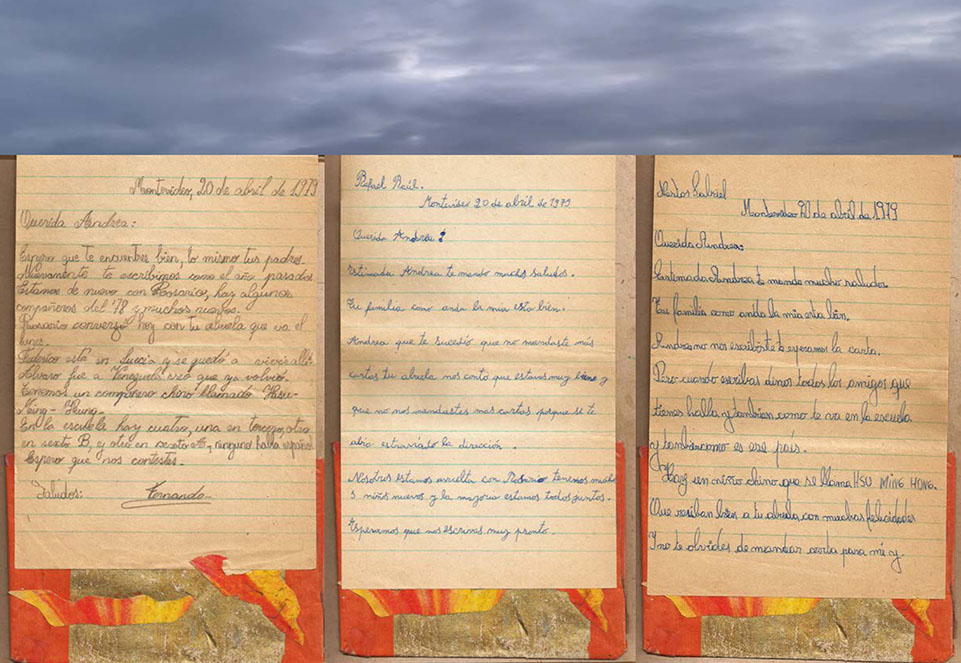 Montevideo, 20 de abril de 1979
Querida Andrea:
Espero que te encuentre bien, lo mismo tus padres.
Nuevamente te escribimos como el año pasado.
Estamos de nuevo con Rosario, hay algunos
compañeros del 78 y muchos nuevos.
Rosario conversó hoy con tu abuela que va el
lunes.
Federico está en Suecia y se quedó a vivir allí.
Alvaro fue a Venezuela creo que ya volvió.
Tenemos un compañero chino llamado Hsu-
Ming-Hung.
En la escuela hay cuatro, una en tercero, otro
en sexto B, y otro en sexto A, ninguno habla español
Espero que nos contestes.
Saludos: Fernando
Rafael Raúl.
Montevideo 20 de abril de 1979.
Querida Andrea:
Estimada Andrea te mando muchos saludos.
Tu familia como anda la mia esta bien.
Andrea que te sucedió que no mandaste más
cartas tu abuela nos conto que estavas muy biene y
que no nos mandastes mas cartas porque se te
abia estraviado la dirección.
Nosotros estamos vuelta con Rosario tenemos
s niños nuevos y la mayoria estamos todos juntos.
Esperamos que nos escrives muy pronto.
Gabriel
Montevideo 20 de abril de 1979
Querida Andrea:
Estemada Andrea te mando mucho saludos
Tu familia como anda la mia esta bien.
Andrea no nos escribiste te esperamos la carta.
Pero cuando escribas dinos todos los amigos que
tienes halla y tambien como te va en la escuela
y tambien como es ese país.
Hay un niño chino que se llama HSU MING HONG.
Que reciban bien a tu abuela con muchas felicidades
I no te olvides de mandar carta para mi y.